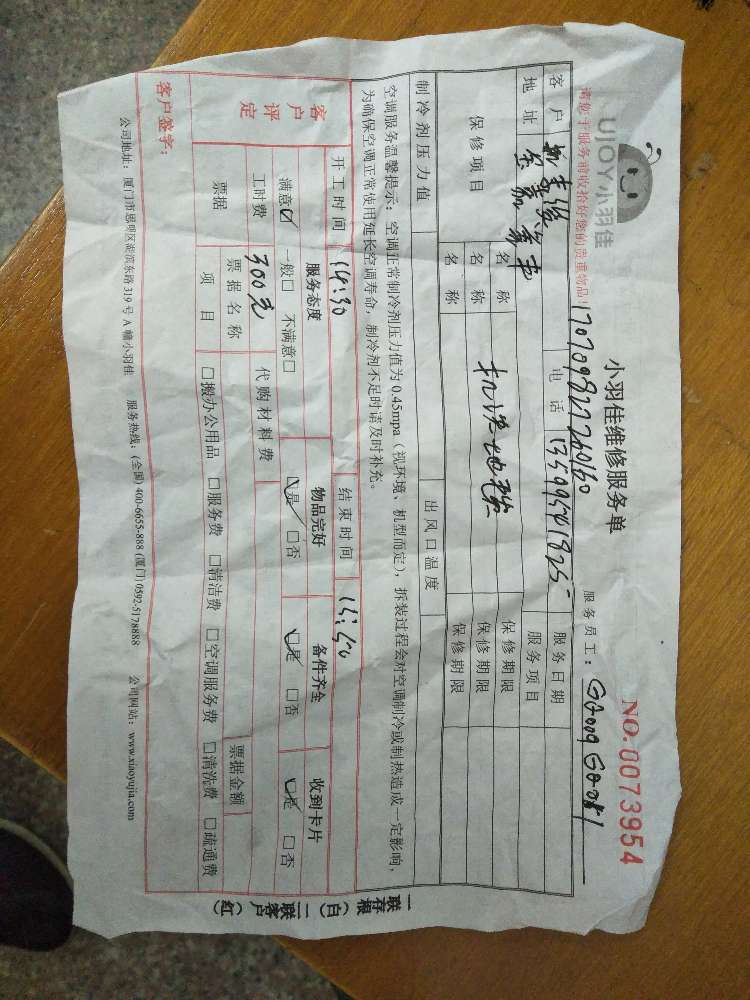 UJOY小羽佳
小羽佳维修服务单
NO.0073954
请您于服务前收拾好您的贵重物品!
170709827260160
服务员工:
客户 电话 服务日期
地址 服务项目
保修项目 名称 机洗地毯 保修期限
名称 保修期限
名称 保修期限
制冷剂压力值 出风口温度
空调服务温馨提示:空调正常制冷剂压力值为0.45mpa(视环境、机型而定),拆装过程会对空调制冷或制热造成一定影响,
为确保空调正常使用延长空调寿命,制冷剂不足时请及时补充。
开工时间 14:30 结束时间 15:50
客户评定 服务态度 物品完好 备件齐全 收到卡片
满意☑ 一般□ 不满意□ ☑是 □否 ☑是 □否 ☑是 □否
工时费 300元 代购材料费
票据 票据名称 票据金额
项目 □搬办公用品 □服务费 □清洁费 □空调服务费 □清洗费 □疏通费
客户签字:
公司地址:厦门市思明区湖滨东路319号A幢小羽佳 服务热线:(全国)400-6655-888 (厦门)0592-5178888 公司网站:www.xiaoyujia.com
一联存根(白) 二联客户(红)